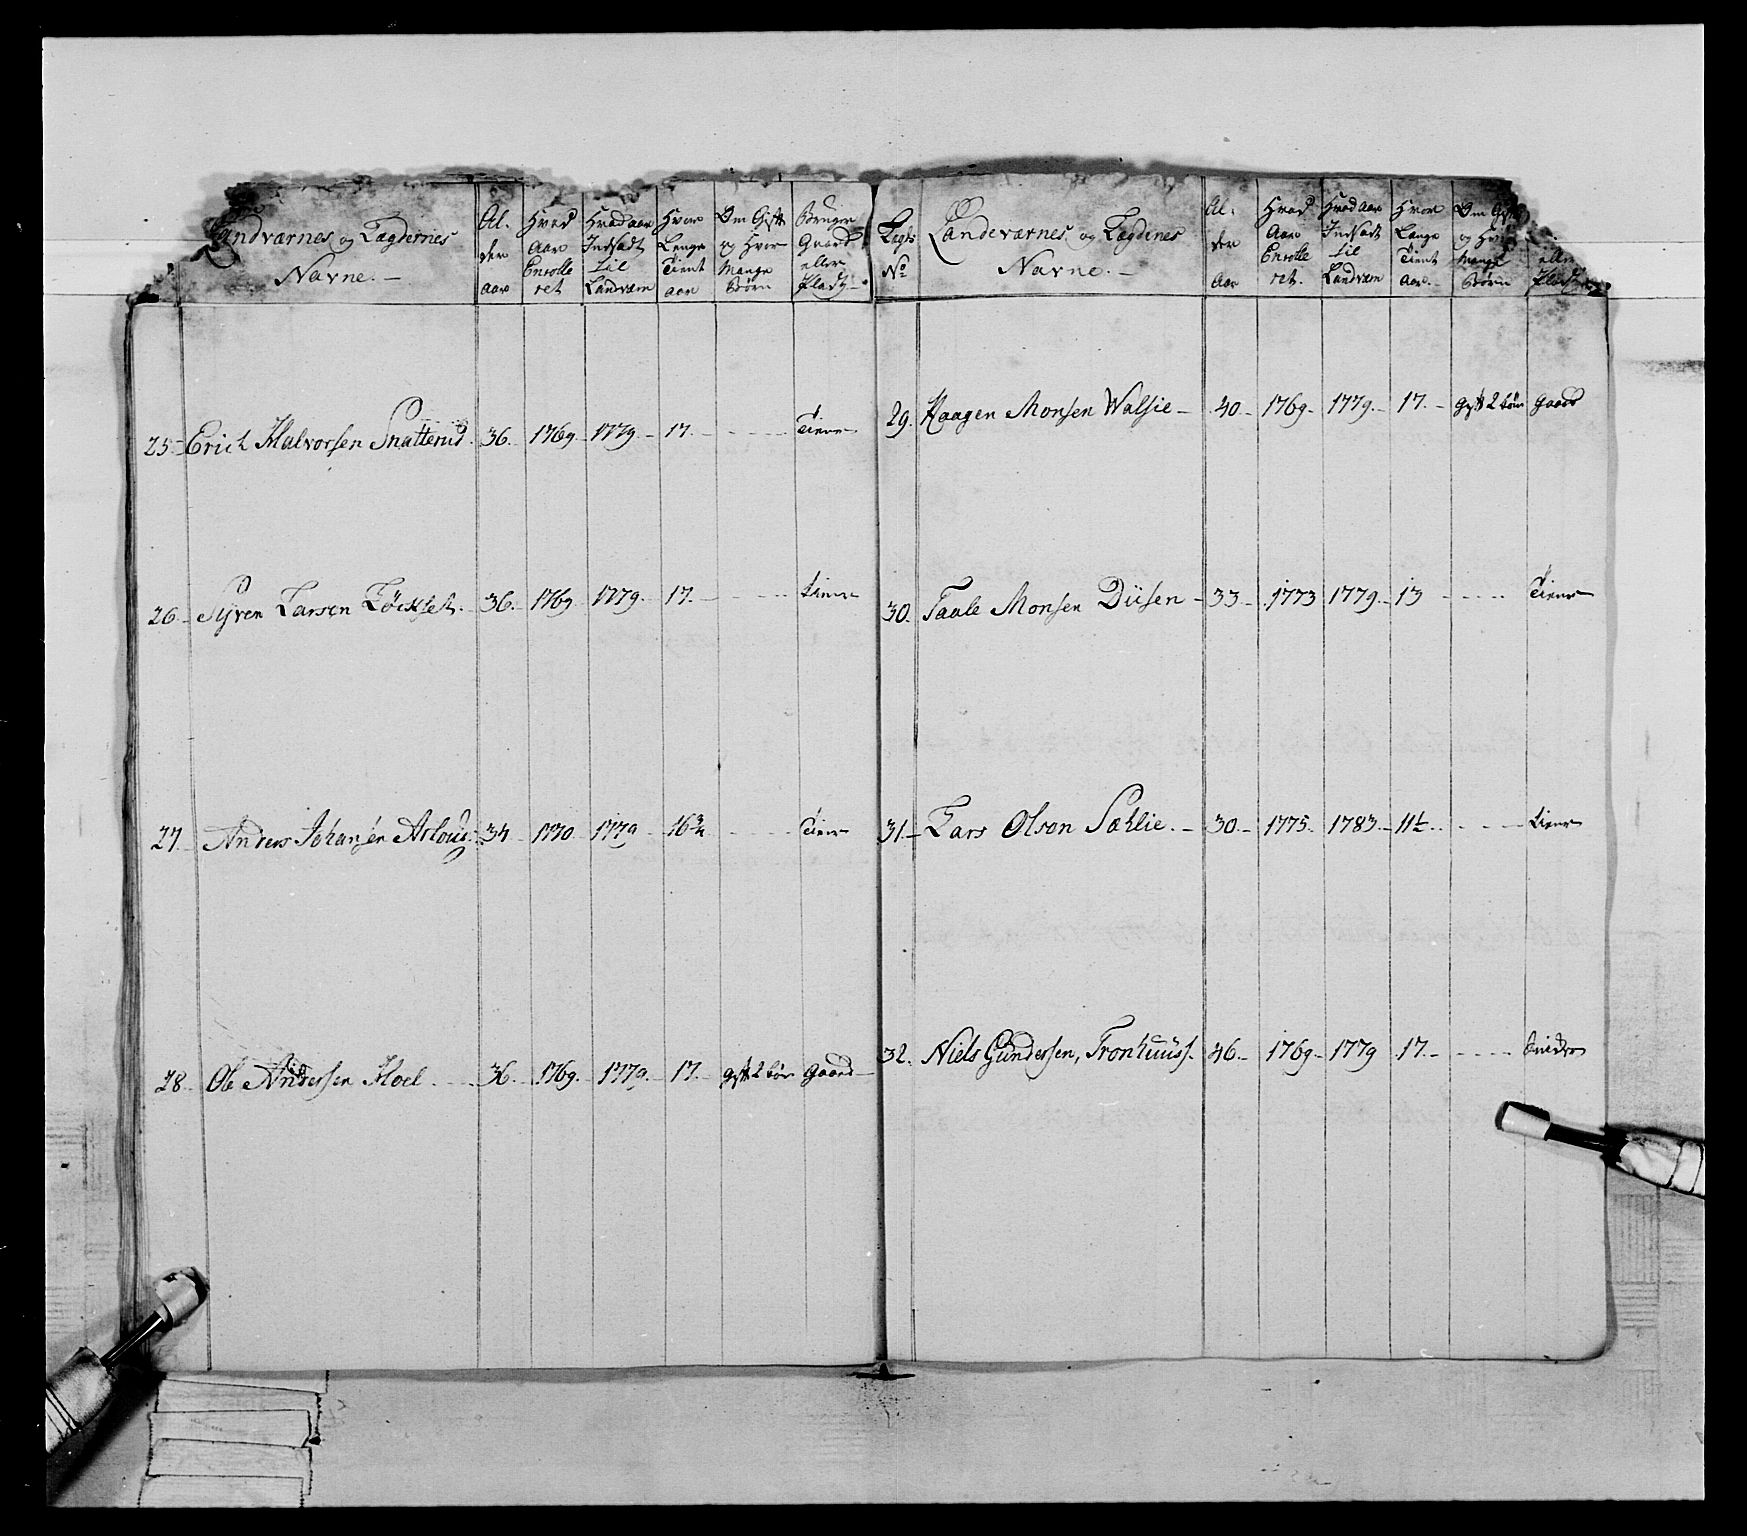 Landværnes og Lægdernes Navne.
Al- der aar
Hvad Aar Enrolle ret
Hvad aar Indsadt til Landværn
Hvor Lenge Tient aar
Om Gift og Hvor Mange Børn
Bruger Gaard eller Plads
25. Erich Halvorsen Snatterud 36. 1769 1779 17. Tiener
26. Syver Larsen Løckset 36. 1769 1779. 17. tiener
27. Anders Johansen 34 1770 1779 16¾ Tiener
28. Ole Andersen Hoel 36. 1769. 1779. 17. gift 2 bør Gaard
Lægds No
Landeværnes og Lægdenes Navne.
Al- der Aar
Hvad Aar Enrolle ret.
Hvad Aar Indsadt til Landværn
Hvor Lange Tient Aar.
Om Gift og Hvor Mange Børn
eller Plads
29. Haagen Monsen Walsie 40 1769 1779 17. gift 2 børn gaard
30. Taale Monsen Diisen 33 1773 1779 13 Tiener
31 Lars Olson Sæhlie. 30 1775. 1783 11½ tiener
32. Niels Gundersen, Tronhuus 46 1769 1779 17.